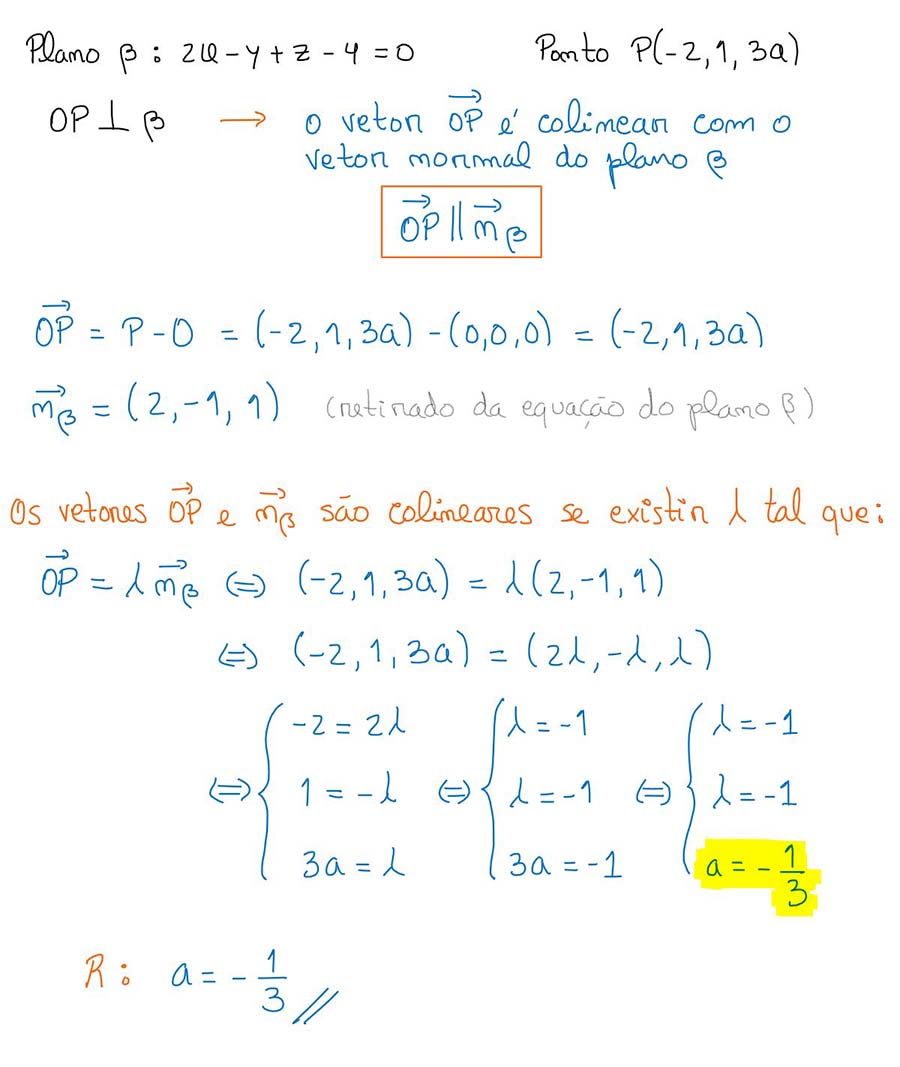 Plano β : 2x - y + z - 4 = 0 Ponto P(-2, 1, 3a)
OP ⊥ β → o vetor OP⃗ é colinear com o
vetor normal do plano β
OP⃗ ∥ n⃗β
OP⃗ = P - O = (-2, 1, 3a) - (0, 0, 0) = (-2, 1, 3a)
n⃗β = (2, -1, 1) (retirado da equação do plano β)
Os vetores OP⃗ e n⃗β são colineares se existir λ tal que:
OP⃗ = λ n⃗β ⇔ (-2, 1, 3a) = λ(2, -1, 1)
⇔ (-2, 1, 3a) = (2λ, -λ, λ)
⇔ { -2 = 2λ { λ = -1 { λ = -1
1 = -λ ⇔ λ = -1 ⇔ λ = -1
3a = λ 3a = -1 a = -1/3
R: a = -1/3 //